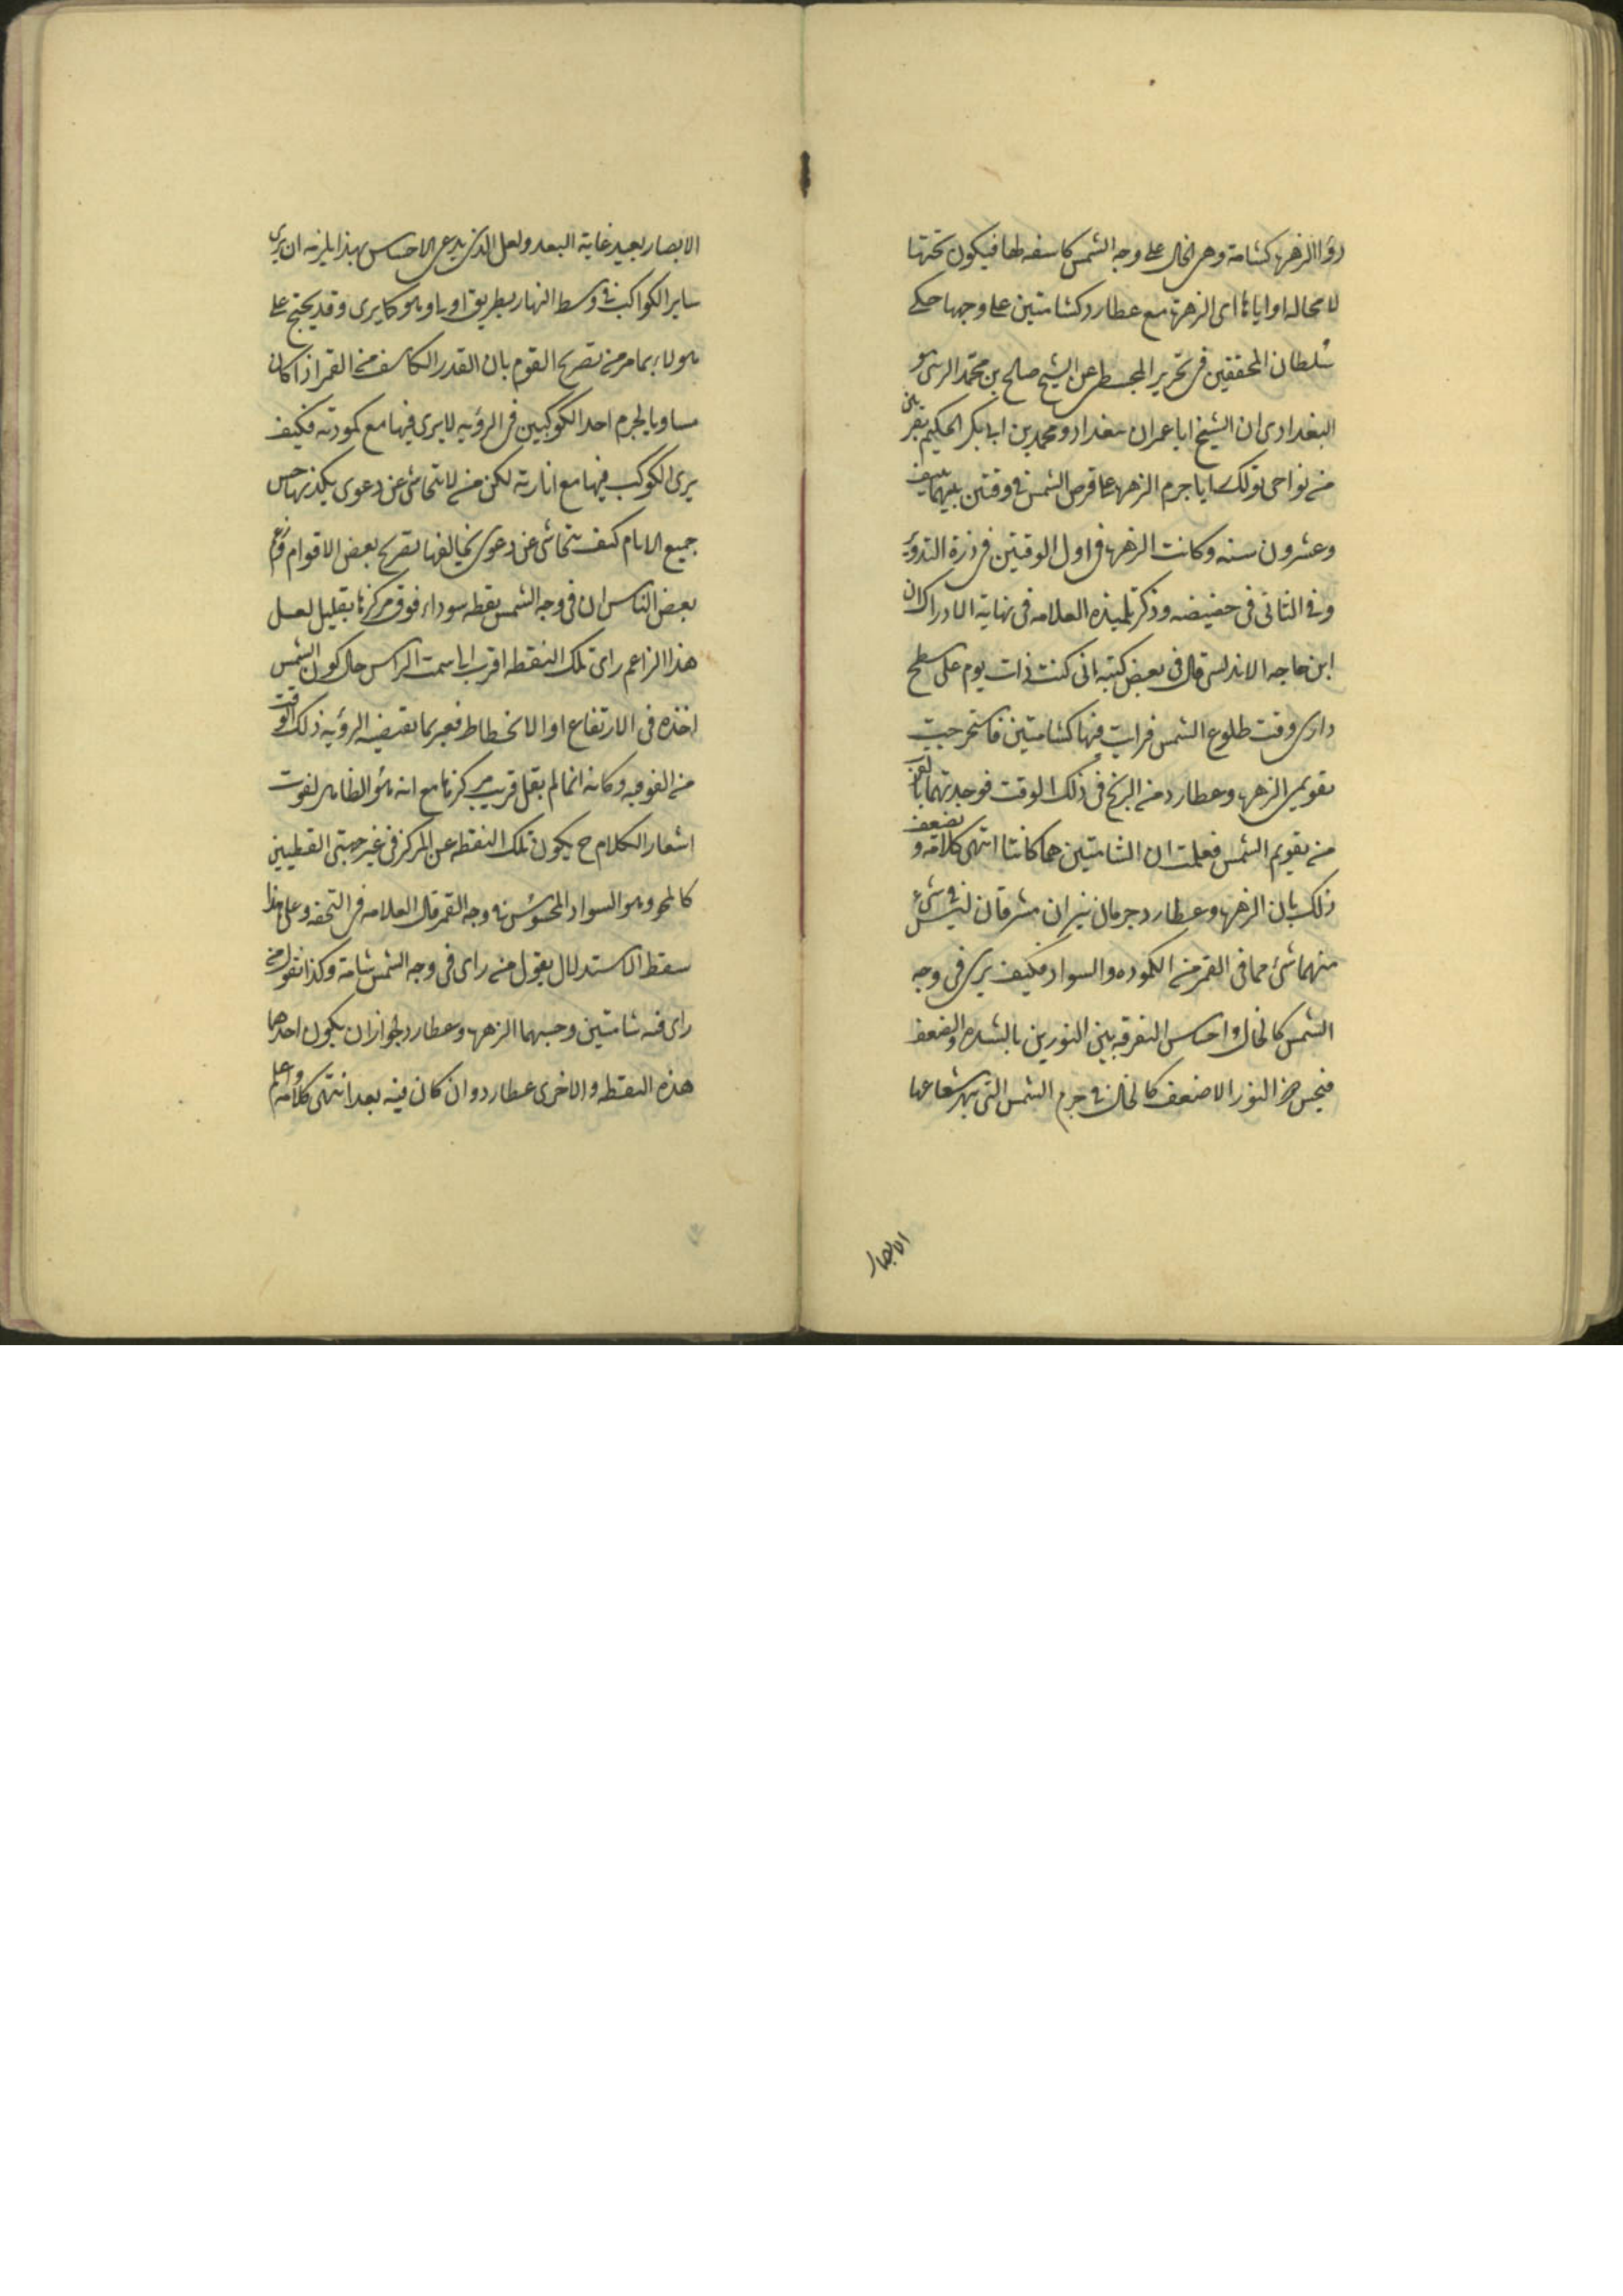 رؤا الزهرة كشامة وهى الخال على وجه الشمس كاسفه لها فيكون تحتها
لا محاله او اياها اى الزهرة مع عطارد كشامتين على وجهها حكى
سلطان المحققين فى تحرير المجسطى عن الشيخ صالح بن محمد
البغدادى ان الشيخ ابا عمران ببغداد ومحمد بن ابى بكر الحكيم
من نواحى تولك رايا جرم الزهره على قرص الشمس فى وقتين بينهما نيف
وعشرون سنه وكانت الزهره فى اول الوقتين فى ذروة التدوير
وفى الثانى فى حضيضه وذكر تلميذه العلامه فى نهاية الادراك ان
ابن باجه الاندلسى قال فى بعض كتبه انى كنت ذات يوم على سطح
دارى وقت طلوع الشمس فرايت فيها كشامتين فاستخرجت
تقويمى الزهره وعطارد من الزيج فى ذلك الوقت فوجدتهما بالقرب
من تقويم الشمس فعلمت ان الشامتين هما كانتا انتهى كلامه و يضعف
ذلك بان الزهره وعطارد جرمان نيران مشرقان ليس فى شئ
منهما شئ مما فى القمر من الكموده والسواد فكيف يرى فى وجه
الشمس كالخال واحساس التفرقه بين النورين بالشدة والضعف
فيحس من النور الاضعف كالخال فى جرم الشمس التى بهر شعاعها
الابصار
الابصار بعيد غاية البعد ولعل الذى يدعى الاحساس بهذا يلزمه ان يرى
ساير الكواكب فى وسط النهار بطريق اولى وهو كما يرى وقد يحتج على
هولاء بما مر من تصريح القوم بان القدر الكاسف من القمر اذا كان
مساويا لجرم احد الكوكبين فى الرؤيه لا يرى فيها مع كمودته فكيف
يرى الكوكب فيها مع انارته لكن من لا يتحاشى عن دعوى يكذبها حس
جميع الانام كيف يتحاشى عن دعوى يخالفها تصريح بعض الاقوام وزعم
بعض الناس ان فى وجه الشمس نقطه سوداء فوق مركزها بقليل لعل
هذا الزاعم راى تلك النقطه اقرب الى سمت الراس حال كون الشمس
اخذه فى الارتفاع او الانحطاط فعبر بما تقتضيه الرؤيه ذلك الوقت
من الفوقيه وكانه انما لم يقل قريب مركزها مع انه هو الظاهر لفوت
اشعار الكلام ح بكون تلك النقطه عن المركز فى غير جهتى القطبين
كالمحو وهو السواد المحسوس فى وجه القمر قال العلامه فى التحفه وعلى هذا
سقط الاستدلال بقول من راى فى وجه الشمس شامة وكذا بقول من
راى فيه شامتين وحسبهما الزهره وعطارد لجواز ان يكون احدهما
هذه النقطه والاخرى عطارد وان كان فيه بعد انتهى كلامه واعلم